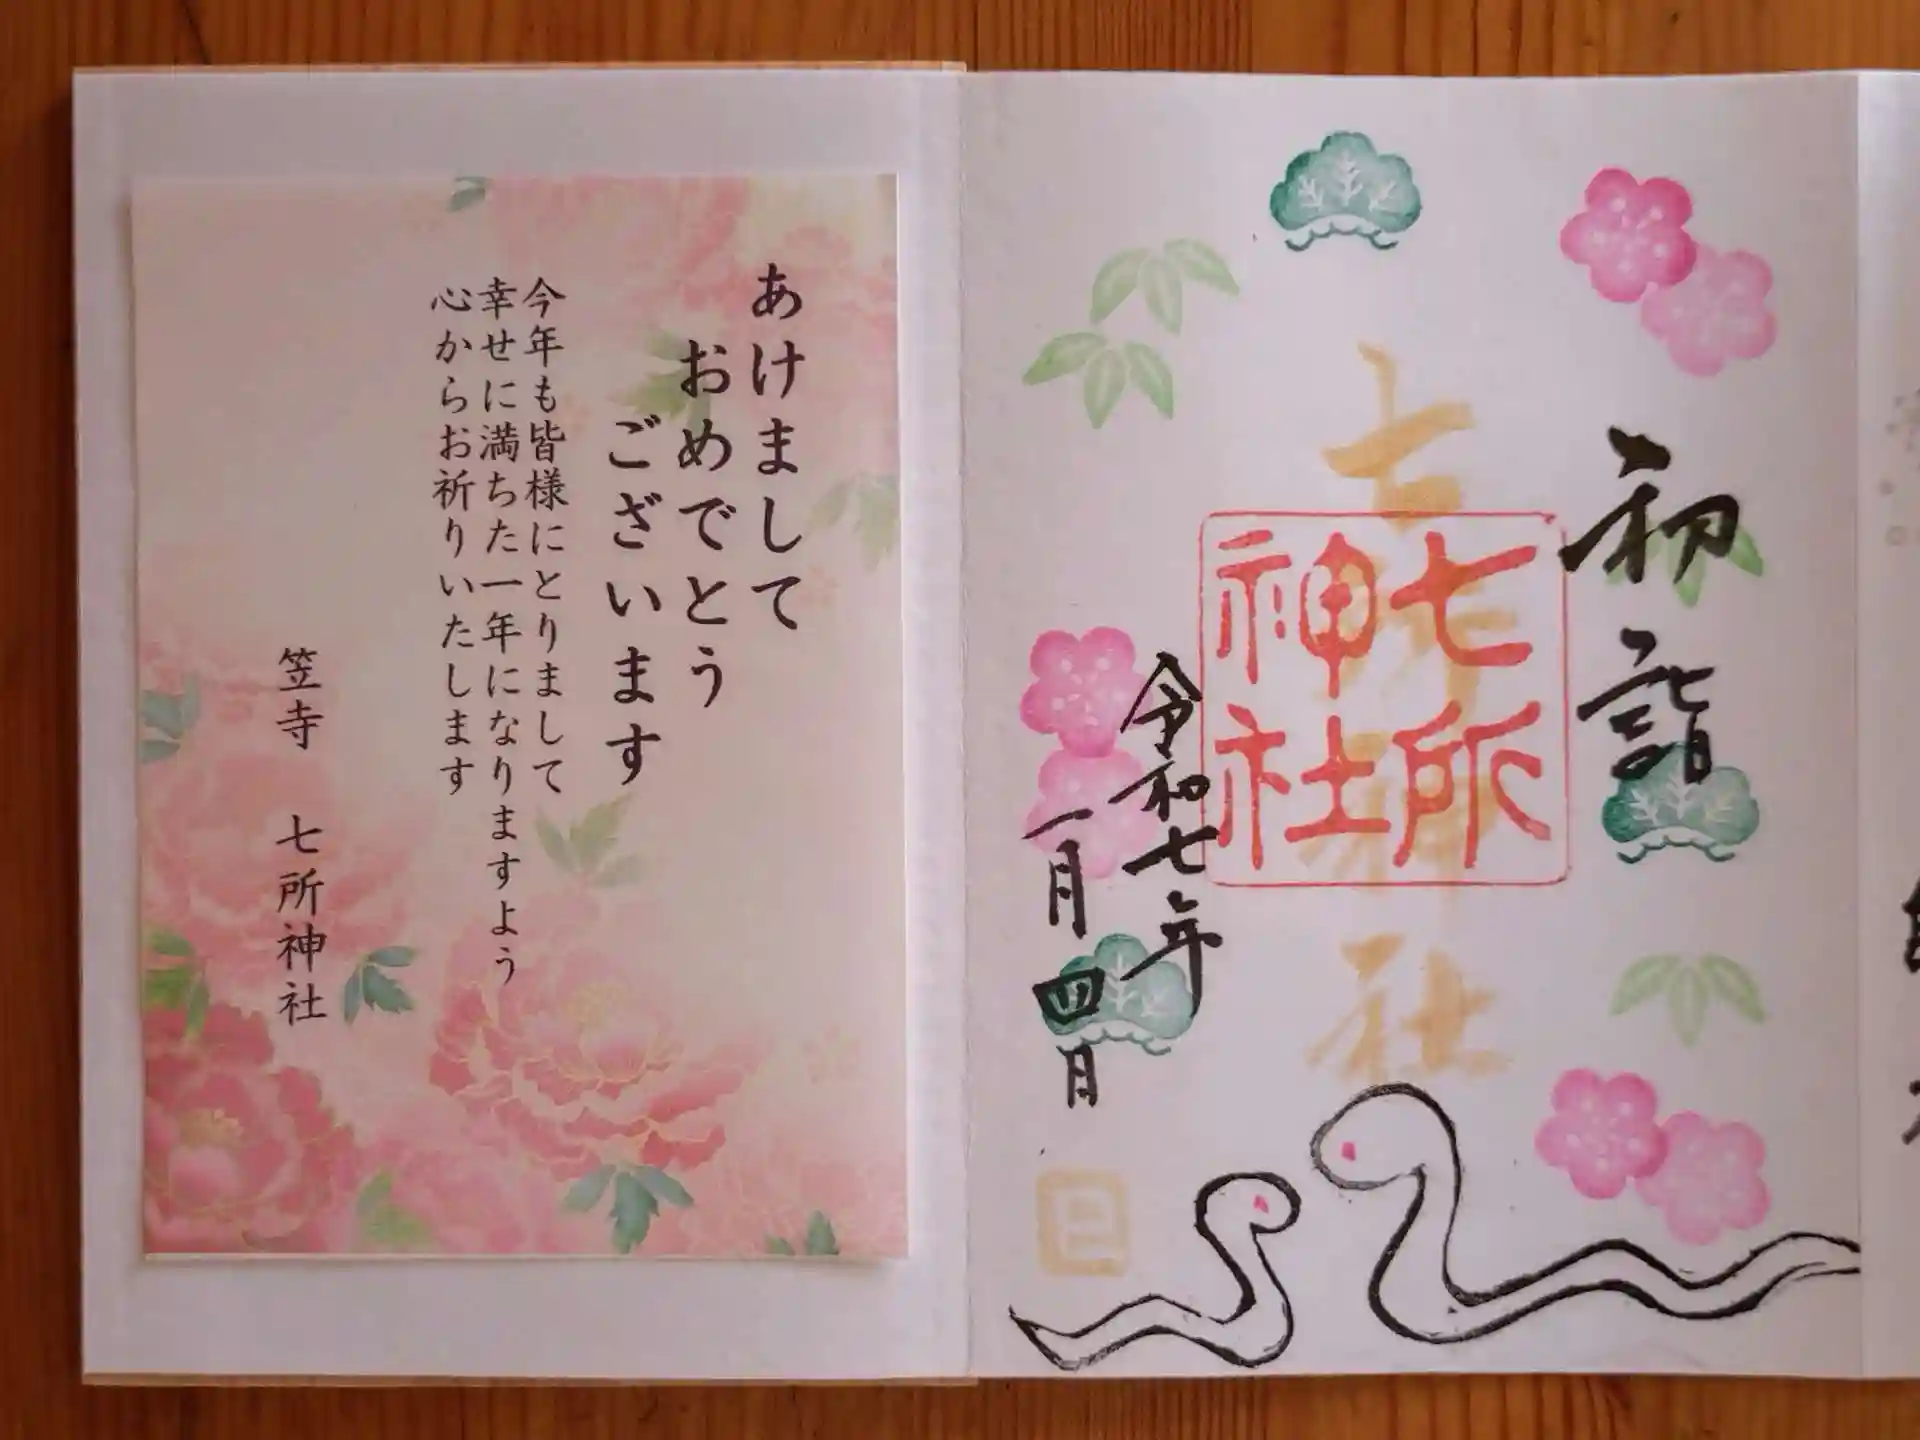 あけまして
おめでとう
ございます
今年も皆様にとりまして
幸せに満ちた一年になりますよう
心からお祈りいたします
笠寺 七所神社
初詣
七所
神社
令和七年
一月四日
巳